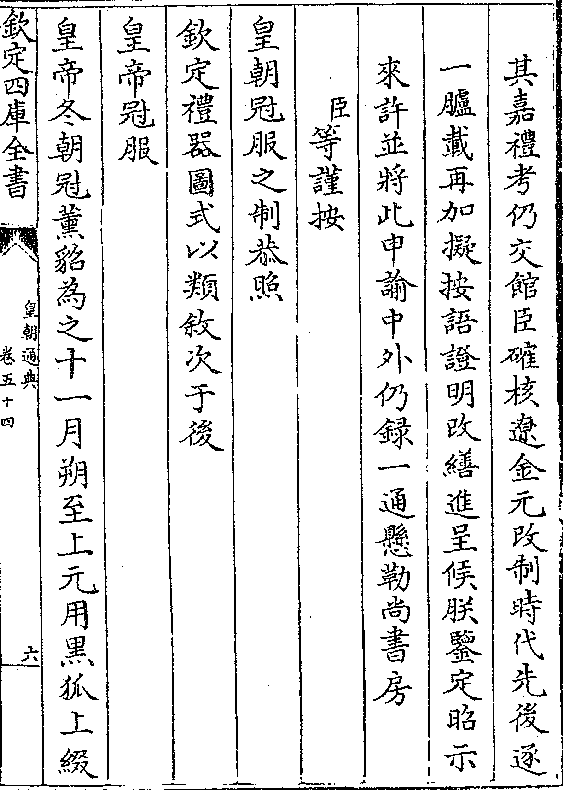 其嘉禮考仍交館臣確核遼金元改制時代先後逐
一臚載再加擬按語證明改繕進呈候朕鑒定昭示
來許並將此申諭中外仍録一通懸勒尚書房
臣等謹按
皇朝冠服之制恭照
欽定禮器圖式以類敘次于後
皇帝冠服
皇帝冬朝冠薰貂為之十一月朔至上元用黑狐上綴
欽定四庫全書
皇朝通典
卷五十四
六